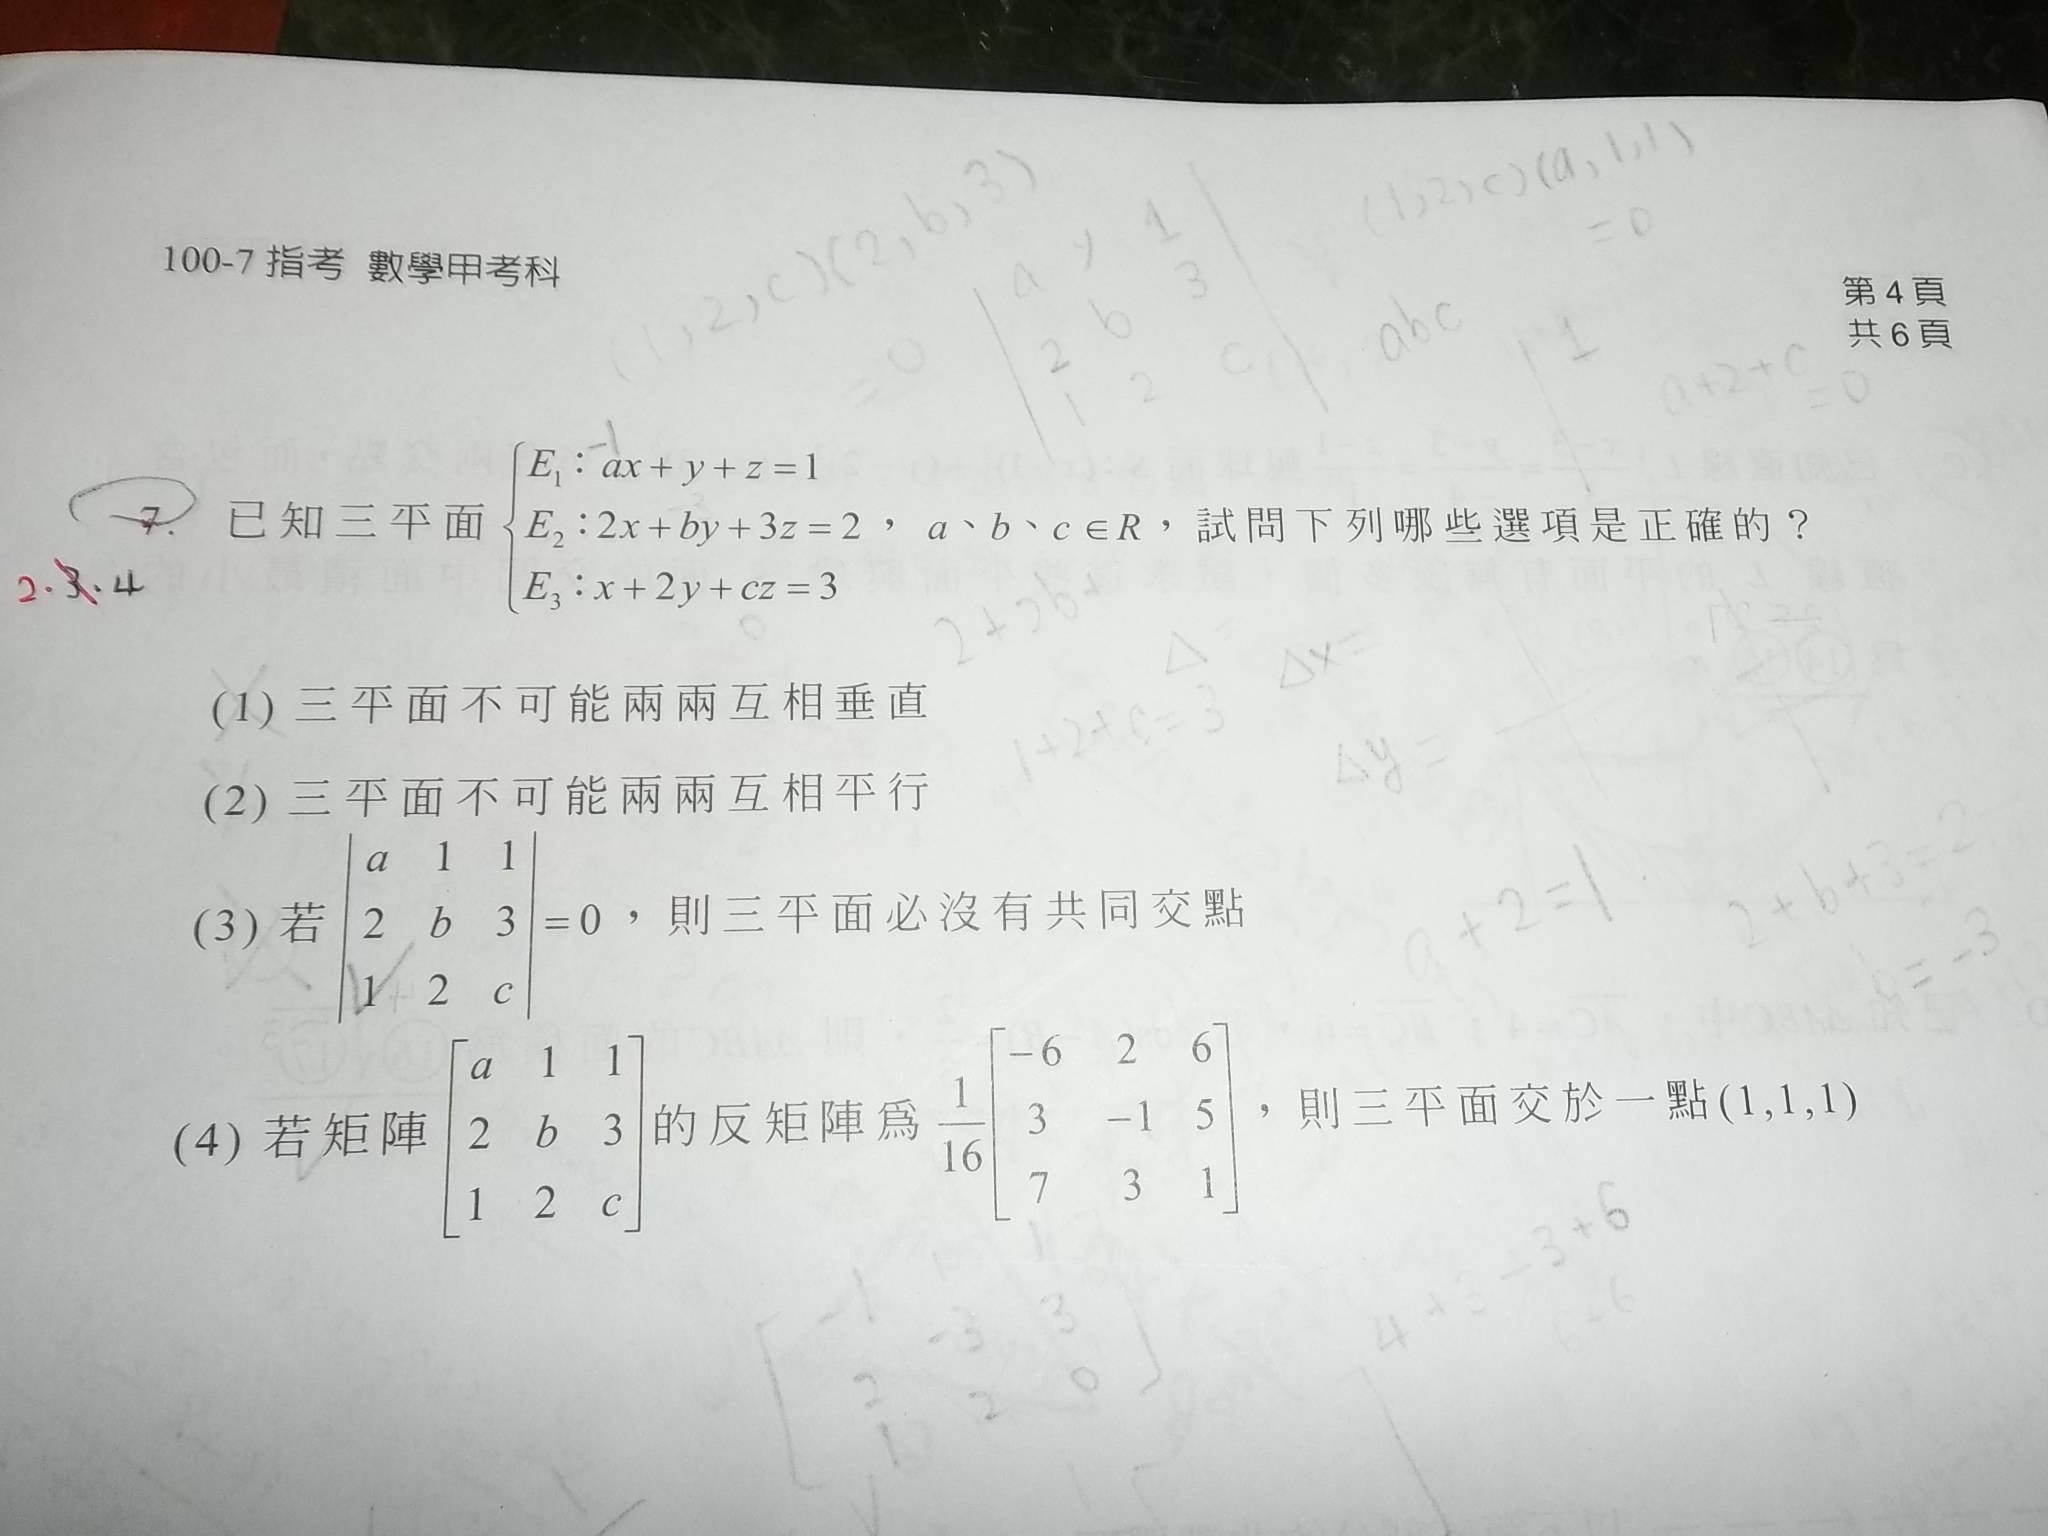 (1,2,c)(2,b,3)
=0
a y 1
2 b 3
1 2 c
abc
(1,2,c)(a,1,1)
=0
1
a+2+c
=0
100-7指考 數學甲考科
第4頁
共6頁
-1
E₁：ax+y+z=1
7. 已知三平面 E₂：2x+by+3z=2，a、b、c∈R，試問下列哪些選項是正確的？
2.3.4
E₃：x+2y+cz=3
0
2+2b+
Δ=
Δx=
(1) 三平面不可能兩兩互相垂直
1+2+c=3
Δy=
(2) 三平面不可能兩兩互相平行
a 1 1
(3) 若 2 b 3 =0，則三平面必沒有共同交點
1 2 c
a+2=1
2+b+3=2
b=-3
(4) 若矩陣 [a 1 1; 2 b 3; 1 2 c] 的反矩陣爲 1/16 [-6 2 6; 3 -1 5; 7 3 1]，則三平面交於一點(1,1,1)
-1 1 1
-3 3
2 2 0
1
-3+6